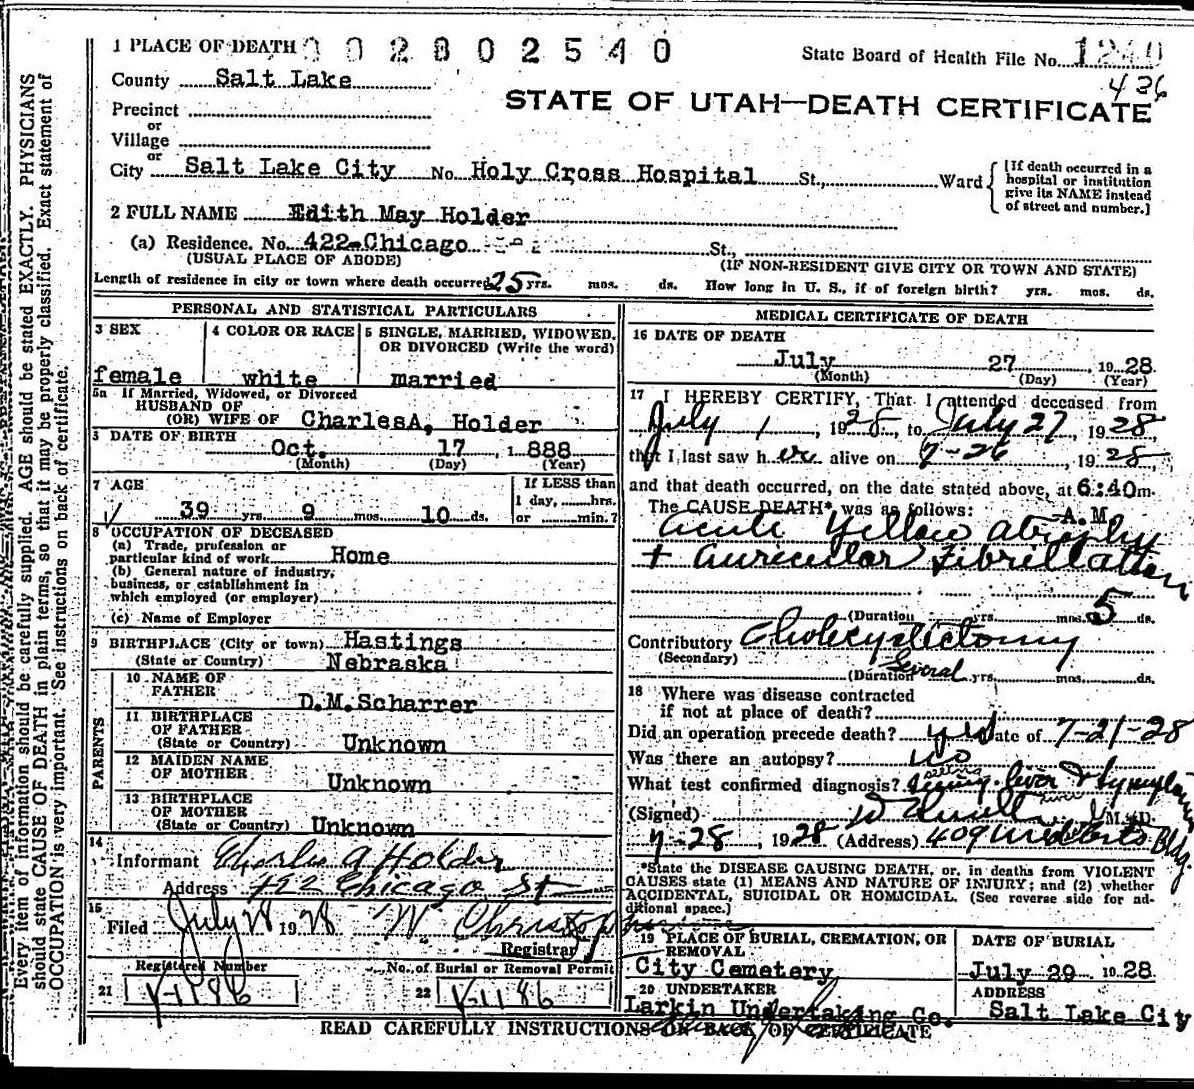 1 PLACE OF DEATH 002802540
State Board of Health File No. 1240
436
County Salt Lake
STATE OF UTAH—DEATH CERTIFICATE
Precinct
or
Village
or
City Salt Lake City No. Holy Cross Hospital St., Ward
[If death occurred in a hospital or institution give its NAME instead of street and number.]
2 FULL NAME Edith May Holder
(a) Residence. No. 422 Chicago St.,
(USUAL PLACE OF ABODE) (IF NON-RESIDENT GIVE CITY OR TOWN AND STATE)
Length of residence in city or town where death occurred 25 yrs. mos. ds. How long in U. S., if of foreign birth? yrs. mos. ds.
PERSONAL AND STATISTICAL PARTICULARS
3 SEX
female
4 COLOR OR RACE
white
5 SINGLE, MARRIED, WIDOWED,
OR DIVORCED (Write the word)
married
5a If Married, Widowed, or Divorced
HUSBAND OF
(OR) WIFE OF Charles A. Holder
DATE OF BIRTH
Oct. 17, 1888
(Month) (Day) (Year)
7 AGE
39 yrs. 9 mos. 10 ds.
If LESS than
1 day, hrs.
or min.?
8 OCCUPATION OF DECEASED
(a) Trade, profession or
particular kind of work Home
(b) General nature of industry,
business, or establishment in
which employed (or employer)
(c) Name of Employer
9 BIRTHPLACE (City or town) Hastings
(State or Country) Nebraska
PARENTS
10 NAME OF
FATHER D.M. Scharrer
11 BIRTHPLACE
OF FATHER
(State or Country) Unknown
12 MAIDEN NAME
OF MOTHER Unknown
13 BIRTHPLACE
OF MOTHER
(State or Country) Unknown
14
Informant Charles A Holder
Address 422 Chicago St
15
Filed July 28 1928 W Christopherson
Registrar
Registered Number
21 V-1186
No. of Burial or Removal Permit
22 V-1186
MEDICAL CERTIFICATE OF DEATH
16 DATE OF DEATH
July 27 1928.
(Month) (Day) (Year)
17 I HEREBY CERTIFY, That I attended deceased from
July 1, 1928, to July 27, 1928
that I last saw her alive on 7-26, 1928
and that death occurred, on the date stated above, at 6:40 m.
A.M.
The CAUSE DEATH* was as follows:
Acute Yellow atrophy
+ Auricular Fibrillation
(Duration yrs. mos. 5 ds.
Contributory Cholecystectomy
(Secondary)
(Duration Several yrs. mos. ds.
18 Where was disease contracted
if not at place of death?
Did an operation precede death? yes Date of 7-21-28
Was there an autopsy? no
What test confirmed diagnosis? Seeing liver & symptoms
seeing
liver
(Signed) M. D.
7-28, 1928 (Address) 409 Bldg.
*State the DISEASE CAUSING DEATH, or, in deaths from VIOLENT
CAUSES state (1) MEANS AND NATURE OF INJURY; and (2) whether
ACCIDENTAL, SUICIDAL OR HOMICIDAL. (See reverse side for ad-
ditional space.)
19 PLACE OF BURIAL, CREMATION, OR
REMOVAL
City Cemetery
DATE OF BURIAL
July 29 1928.
20 UNDERTAKER
Larkin Undertaking Co.
ADDRESS
Salt Lake City
READ CAREFULLY INSTRUCTIONS ON BACK OF CERTIFICATE
Every item of information should be carefully supplied. AGE should be stated EXACTLY. PHYSICIANS
should state CAUSE OF DEATH in plain terms, so that it may be properly classified. Exact statement of
OCCUPATION is very important. See instructions on back of certificate.